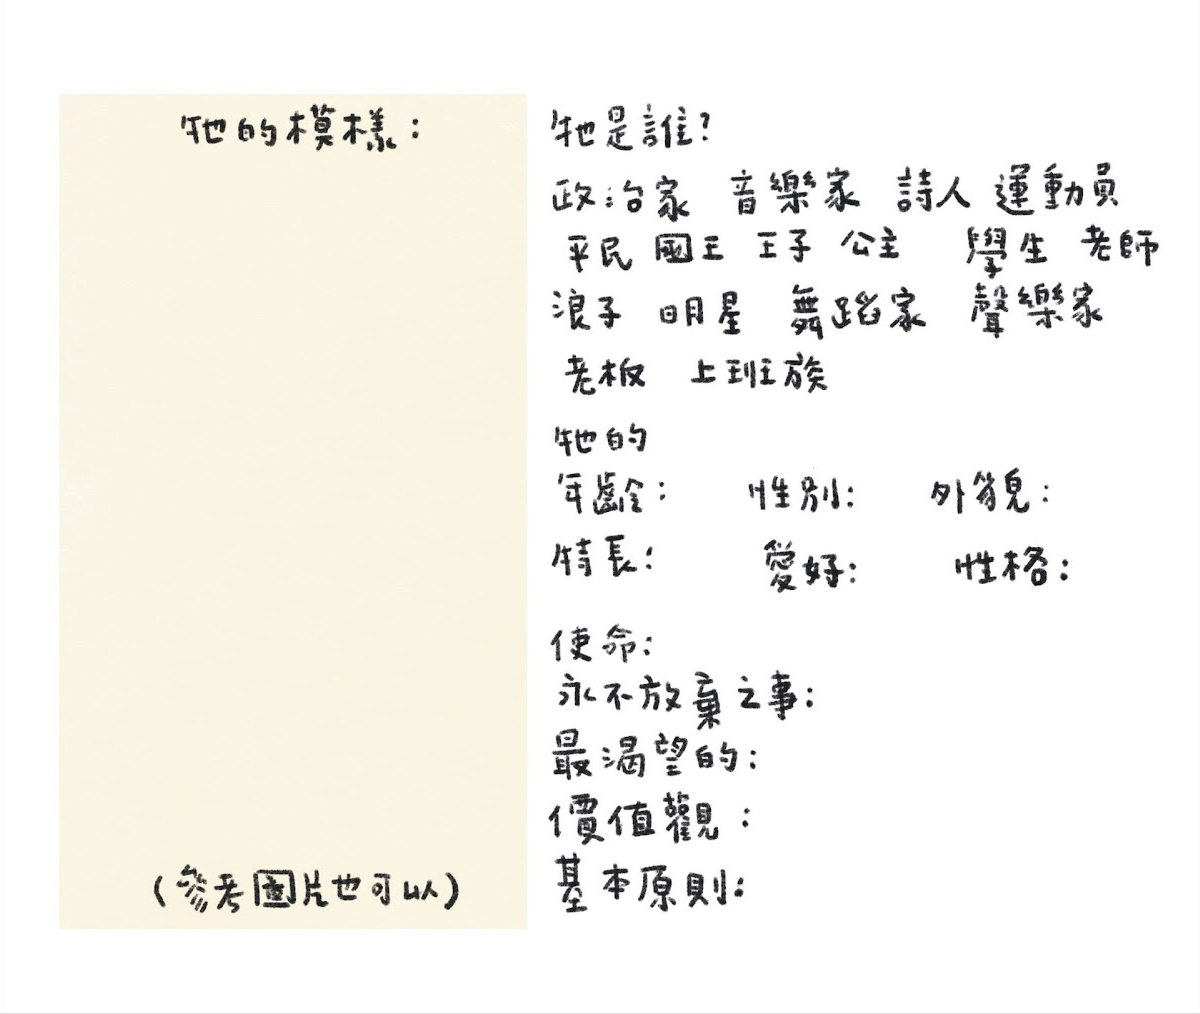 牠的模樣：
(參考圖片也可以)
牠是誰?
政治家 音樂家 詩人 運動員
平民 國王 王子 公主 學生 老師
浪子 明星 舞蹈家 聲樂家
老板 上班族
牠的
年齡： 性別： 外貌：
特長： 愛好： 性格：
使命：
永不放棄之事：
最渴望的：
價值觀：
基本原則：